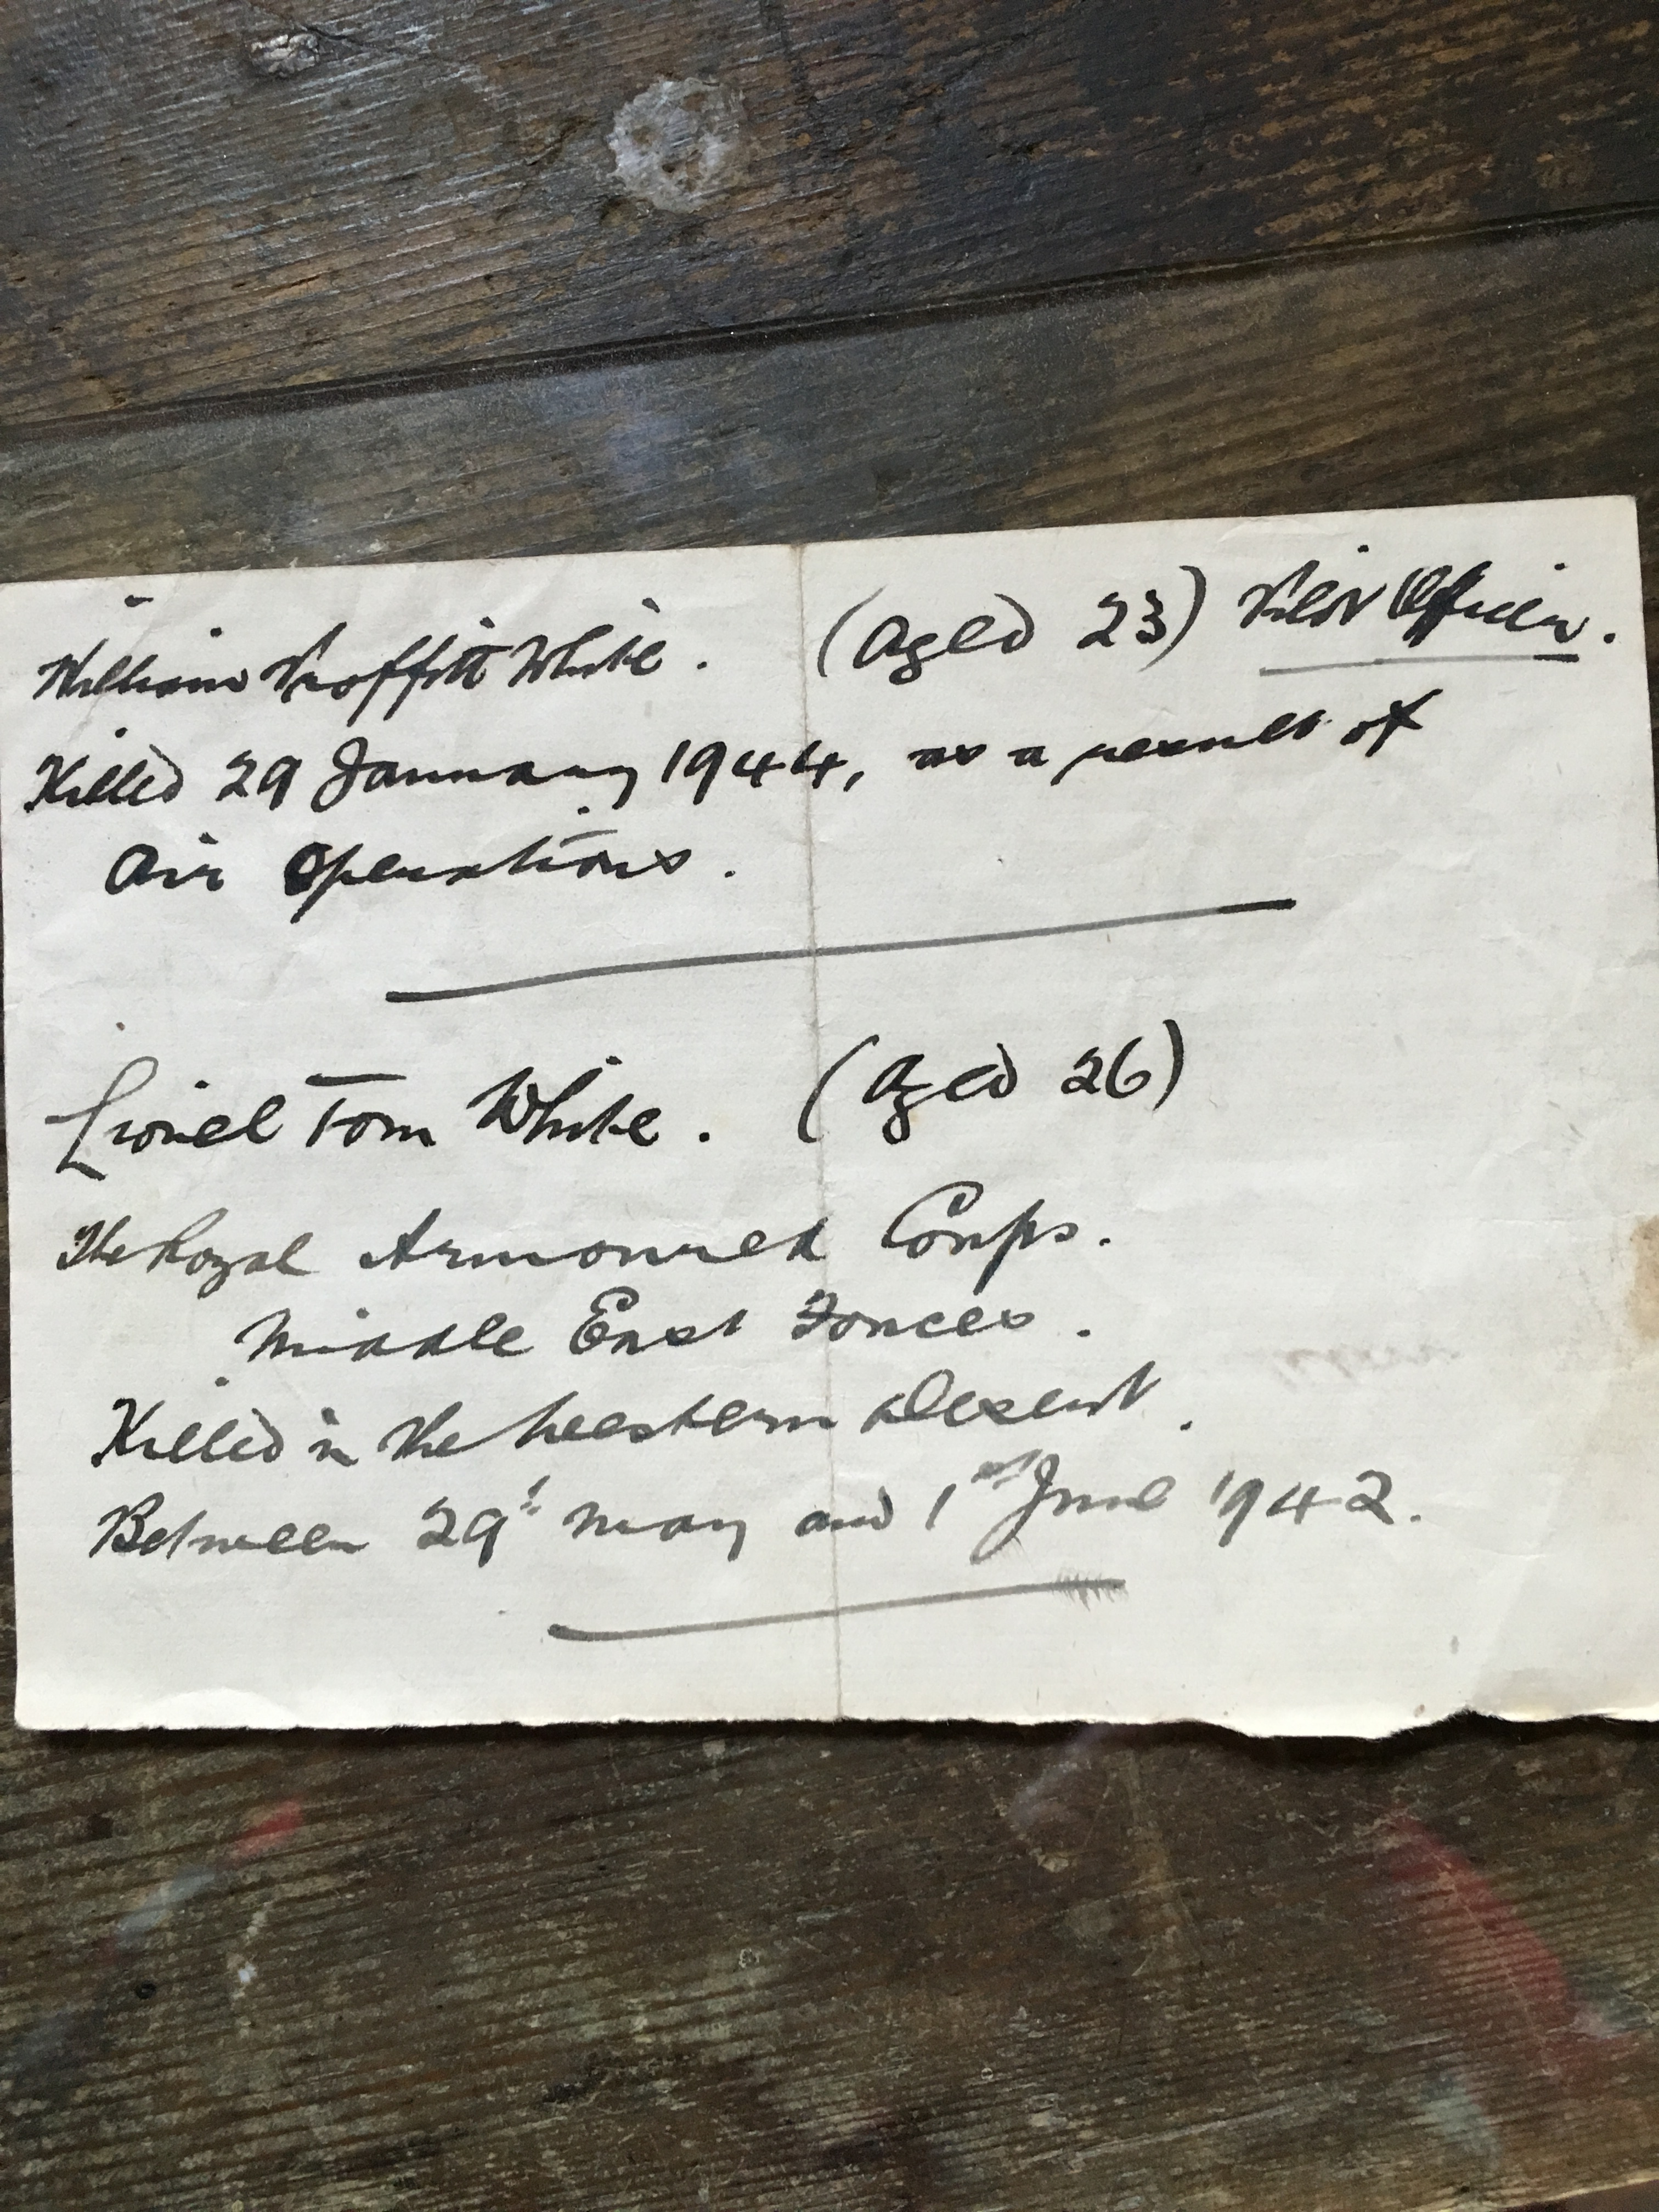 William Proffitt White. (Aged 23) Pilot Officer.
Killed 29 January 1944, as a result of
Air Operations.
Lionel Tom White. (Aged 26)
The Royal Armoured Corps.
Middle East Forces.
Killed in the Western Desert.
Between 29th May and 1st June 1942.